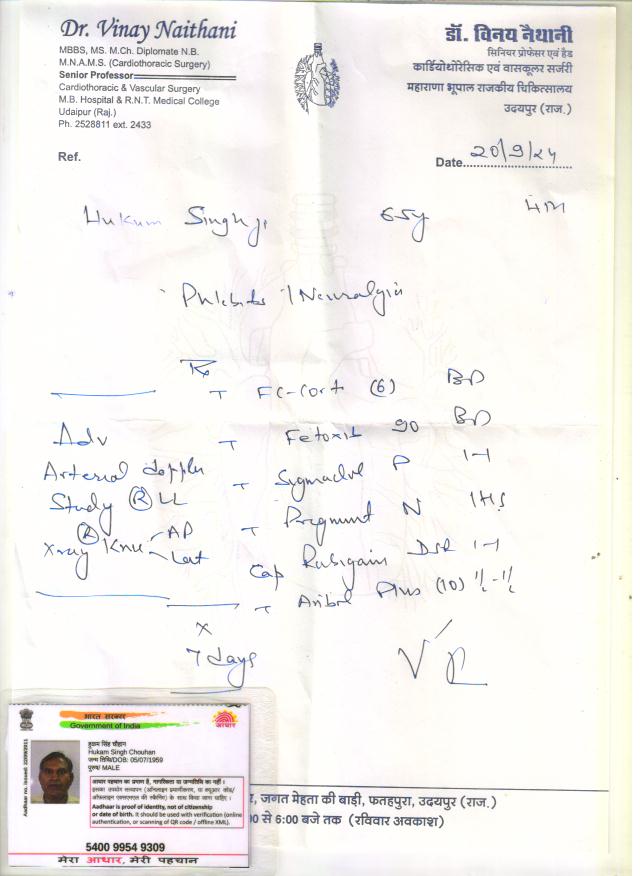 Dr. Vinay Naithani
MBBS, MS. M.Ch. Diplomate N.B.
M.N.A.M.S. (Cardiothoracic Surgery)
Senior Professor
Cardiothoracic & Vascular Surgery
M.B. Hospital & R.N.T. Medical College
Udaipur (Raj.)
Ph. 2528811 ext. 2433
डॉ. विनय नैथानी
सिनियर प्रोफेसर एवं हैड
कार्डियोथोरेसिक एवं वासकूलर सर्जरी
महाराणा भूपाल राजकीय चिकित्सालय
उदयपुर (राज.)
Ref.
Date 20/9/24
Hukum Singh ji 65y
Phlebitis / Neuralgia
Rx
T FC-Cort (6) BD
Adv
T Fetoxit 90 BD
Arterial doppler
T P 1-1
Study (R) LL
T N 1HS
(R)
Xray Knee AP Lat
Cap DSR 1-1
T Plus (10) ½-½
x
7 days
भारत सरकार
Government of India
आधार
Aadhaar no. issued: 22/09/2011
हुकम सिंह चौहान
Hukam Singh Chouhan
जन्म तिथि/DOB: 05/07/1959
पुरुष/ MALE
आधार पहचान का प्रमाण है, नागरिकता या जन्मतिथि का नहीं।
इसका उपयोग सत्यापन (ऑनलाइन प्रमाणीकरण, या क्यूआर कोड/
ऑफलाइन एक्सएमएल की स्कैनिंग) के साथ किया जाना चाहिए।
Aadhaar is proof of identity, not of citizenship
or date of birth. It should be used with verification (online
authentication, or scanning of QR code / offline XML).
5400 9954 9309
मेरा आधार, मेरी पहचान
, जगत मेहता की बाड़ी, फतहपुरा, उदयपुर (राज.)
से 6:00 बजे तक (रविवार अवकाश)